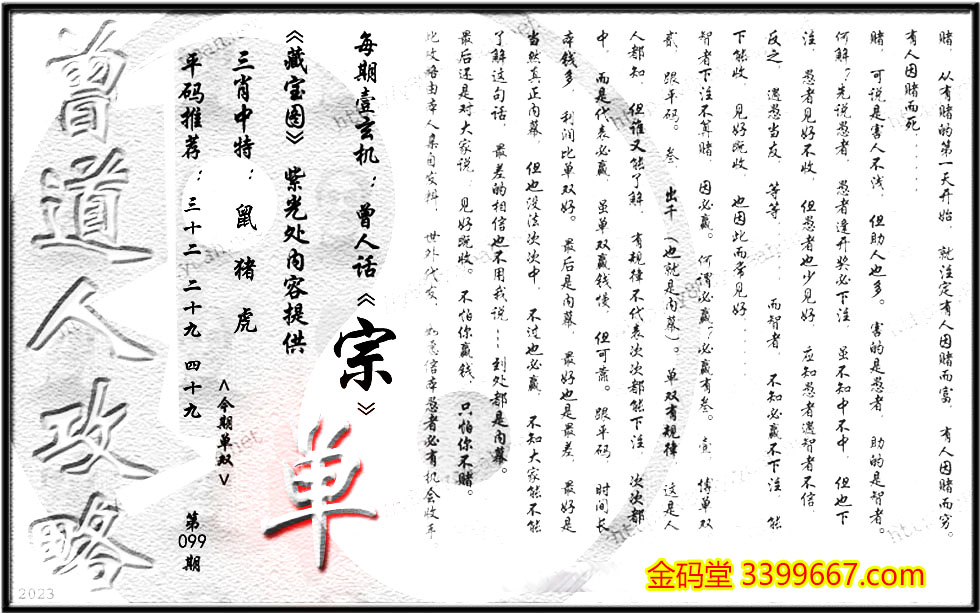 赌，从有赌的第一天开始，就注定有人因赌而富，有人因赌而穷。
有人因赌而死......
赌，可说是害人不浅，但助人也多。害的是愚者，助的是智者。
何解？先说愚者，愚者逢开奖必下注，虽不知中不中，但也下
注，愚者见好不收，但愚者也少见好，应知愚者遇智者不信，
反之，遇愚当友，等等......而智者，不知必赢不下注，能
下能收，见好就收，也因此而常见好......
智者下注不算赌，因必赢。何谓必赢？必赢有叁。壹，博单双
贰，跟平码。叁，出千（也就是内幕）。单双有规律，这是人
人都知，但谁又能了解，有规律不代表次次都能下注，次次都
中，而是代表必赢，虽单双赢钱慢，但可靠。跟平码，时间长
本钱多，利润比单双好。最后是内幕，最好也是最差，最好是
当然真正内幕，但也没法次次中，不过也必赢，不知大家能不能
了解这句话，最差的相信也不用我说……到处都是内幕。
最后还是对大家说，见好就收。不怕你赢钱，只怕你不赌。
此攻略由本人亲自发料，世外代友，如愿信本愚者必有机会收本
每期壹玄机：曾人话《宗》
《藏宝图》紫光处内容提供
三肖中特：鼠 猪 虎
<今期单双>
单
平码推荐：三十二 二十九 四十九
第099期
曾道人攻略
2023
金码堂 3399667.com